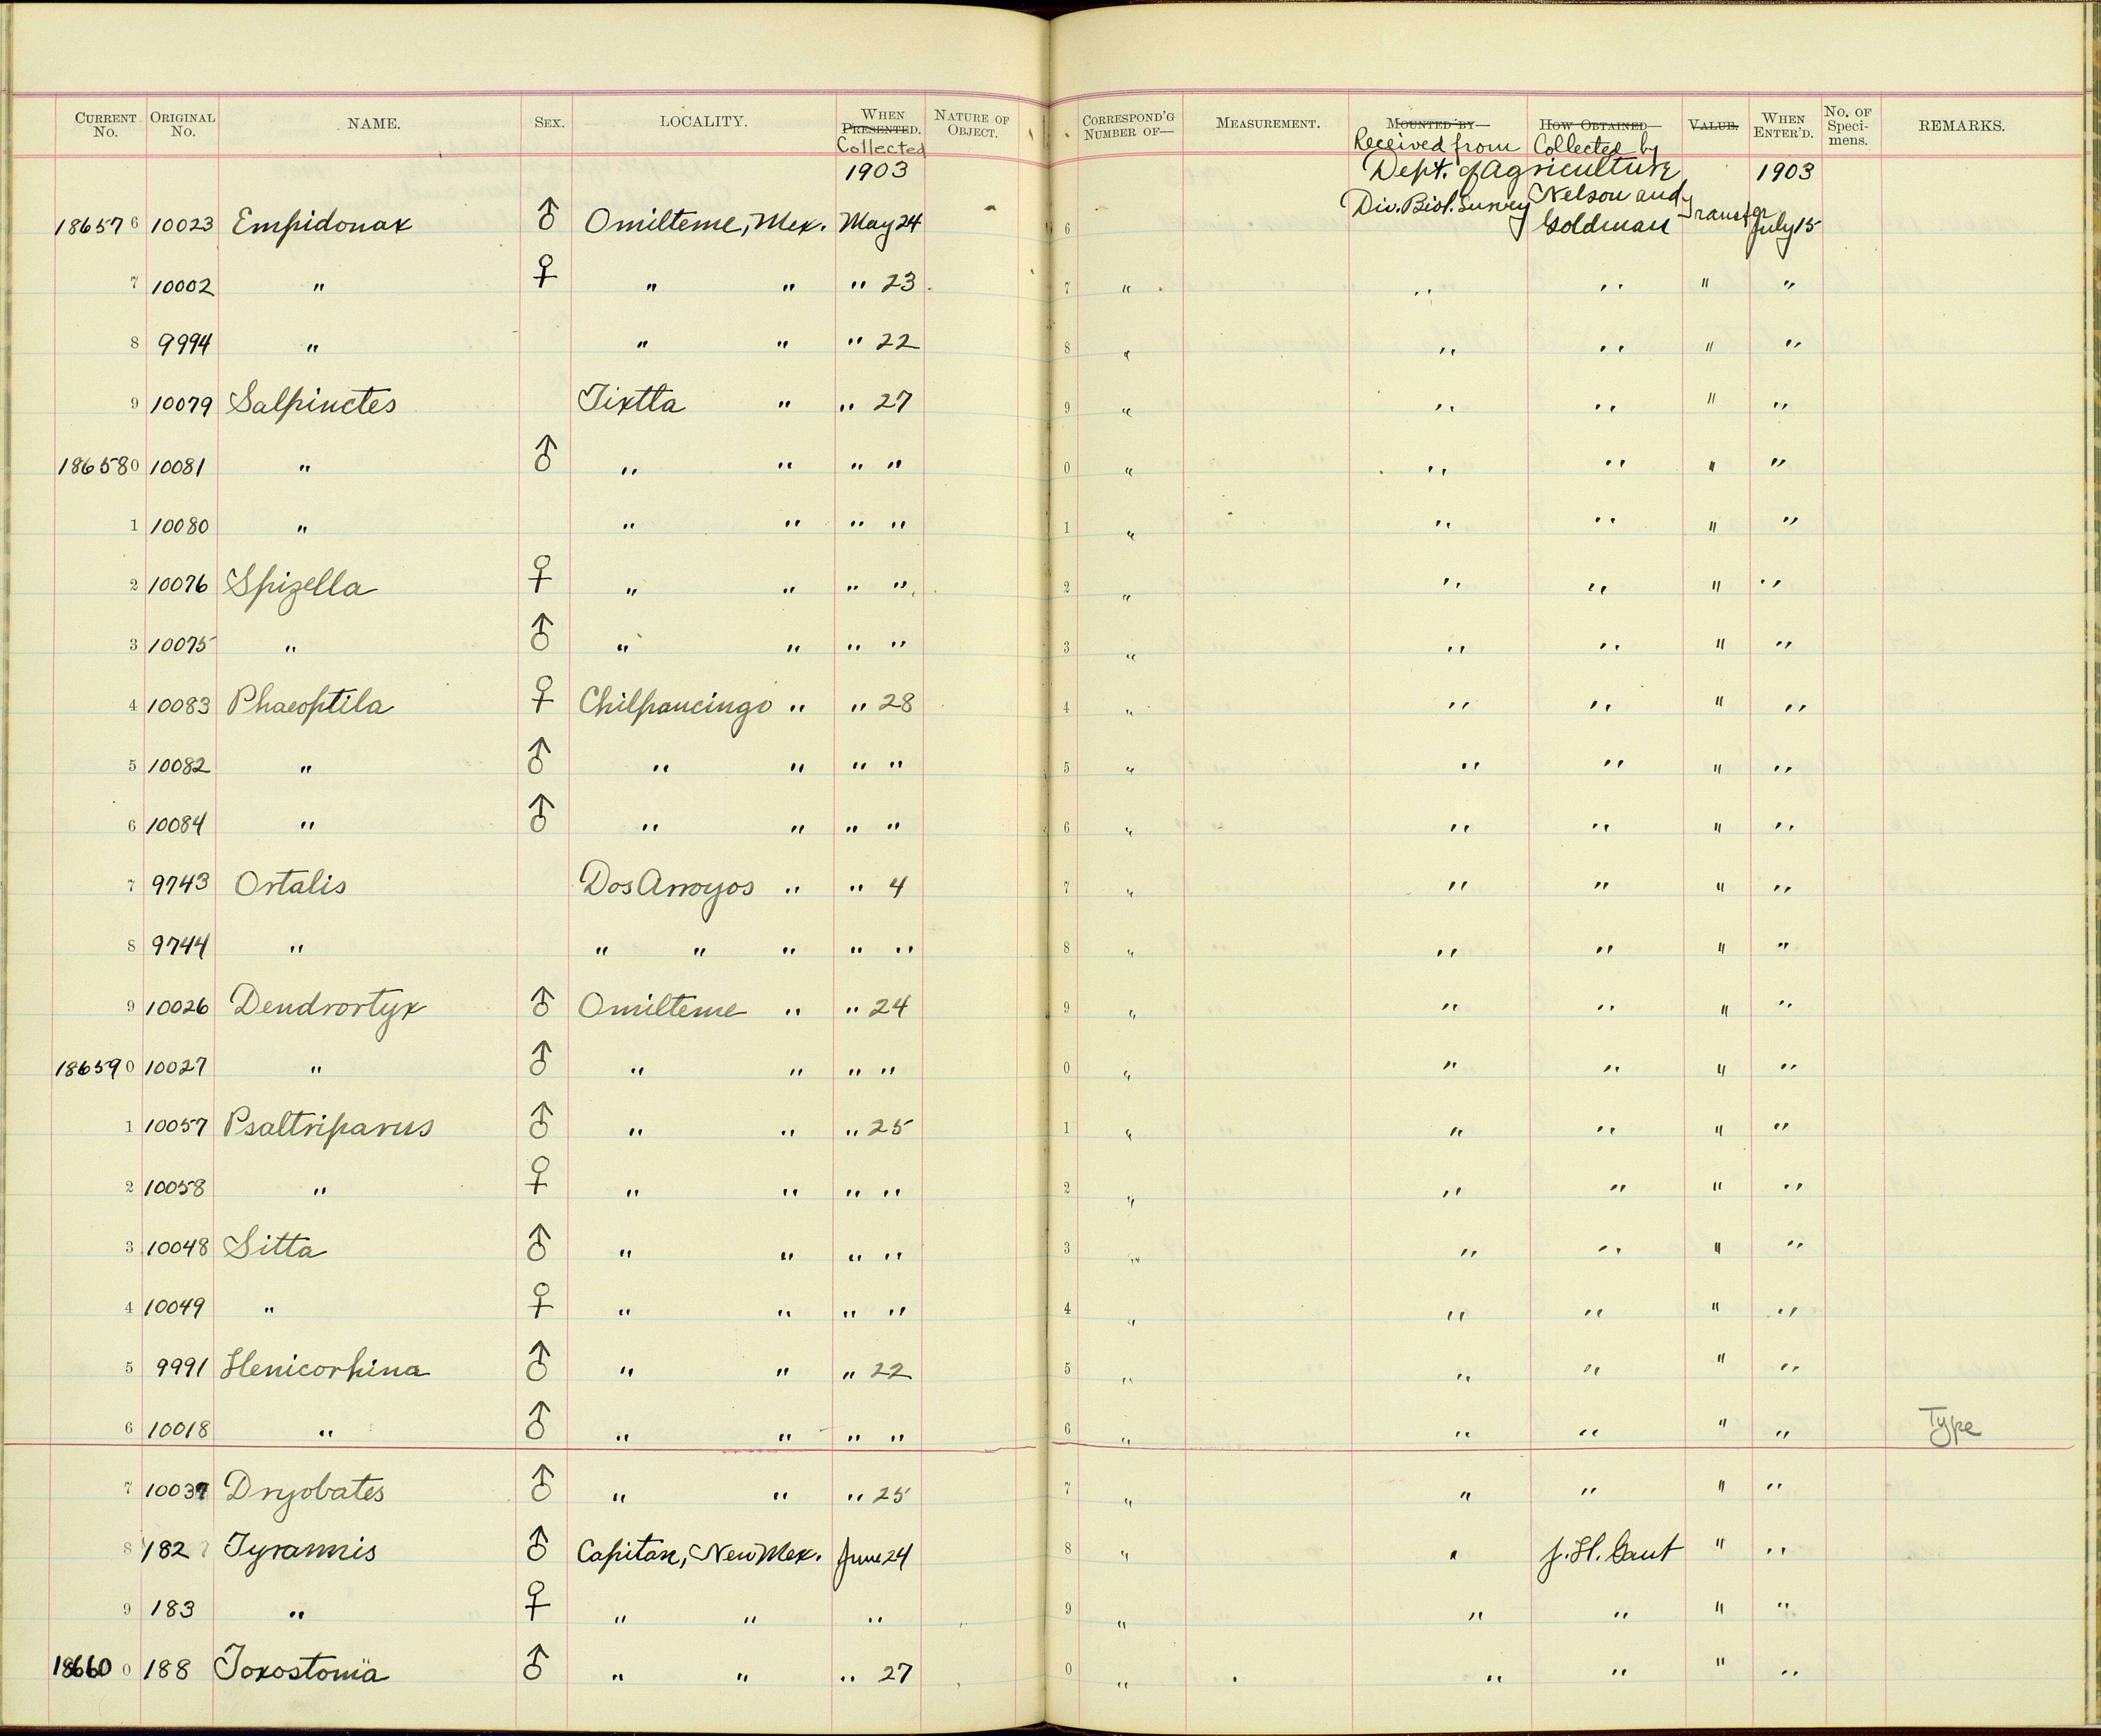 CURRENT No. ORIGINAL No. NAME. SEX. LOCALITY. WHEN PRESENTED. Collected NATURE OF OBJECT. CORRESPOND'G NUMBER OF— MEASUREMENT. MOUNTED BY— Received from HOW OBTAINED— Collected by VALUE. WHEN ENTER'D. No. OF Speci- mens. REMARKS.
1903 Dept. of Agriculture 1903
186576 10023 Empidonax ♂ Omilteme, Mex. May 24 6 Div. Biol. Survey Nelson and Goldman Transfer July 15
7 10002 " ♀ " " " 23 7 " " " " "
8 9994 " " " " 22 8 " " " " "
9 10079 Salpinctes Tixtla " " 27 9 " " " " "
186580 10081 " ♂ " " " " 0 " " " " "
1 10080 " " " " " 1 " " " " "
2 10076 Spizella ♀ " " " " 2 " " " " "
3 10075 " ♂ " " " " 3 " " " " "
4 10083 Phaeoptila ♀ Chilpancingo " " 28 4 " " " " "
5 10082 " ♂ " " " " 5 " " " " "
6 10084 " ♂ " " " " 6 " " " " "
7 9743 Ortalis Dos Arroyos " " 4 7 " " " " "
8 9744 " " " " " " 8 " " " " "
9 10026 Dendrortyx ♂ Omilteme " " 24 9 " " " " "
186590 10027 " ♂ " " " " 0 " " " " "
1 10057 Psaltriparus ♂ " " " 25 1 " " " " "
2 10058 " ♀ " " " " 2 " " " " "
3 10048 Sitta ♂ " " " " 3 " " " " "
4 10049 " ♀ " " " " 4 " " " " "
5 9991 Henicorhina ♂ " " " 22 5 " " " " "
6 10018 " ♂ " " " " 6 " " " " " Type
7 10037 Dryobates ♂ " " " 25 7 " " " " "
8 182 Tyrannis ♂ Capitan, New Mex. June 24 8 " " J. H. Gaut " "
9 183 " ♀ " " " 9 " " " " "
18660 0 188 Toxostoma ♂ " " " 27 0 " " " " "